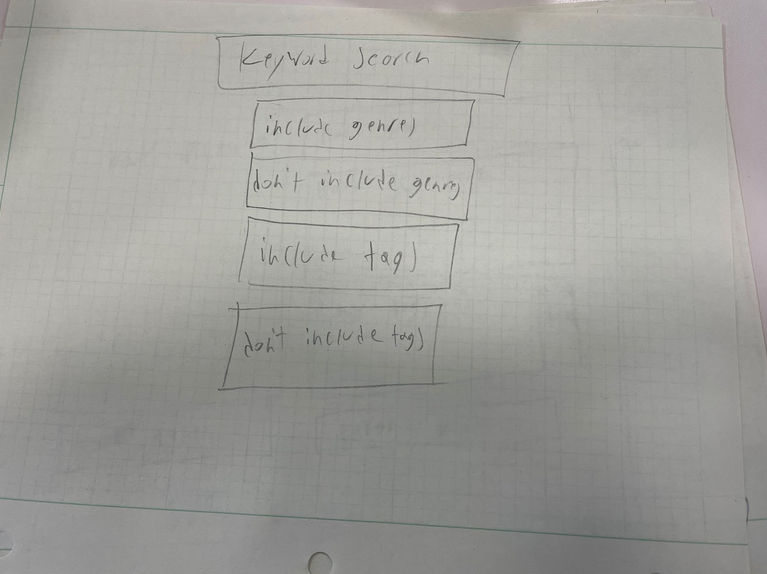 Keyword Search
include genres
don't include genres
include tags
don't include tags